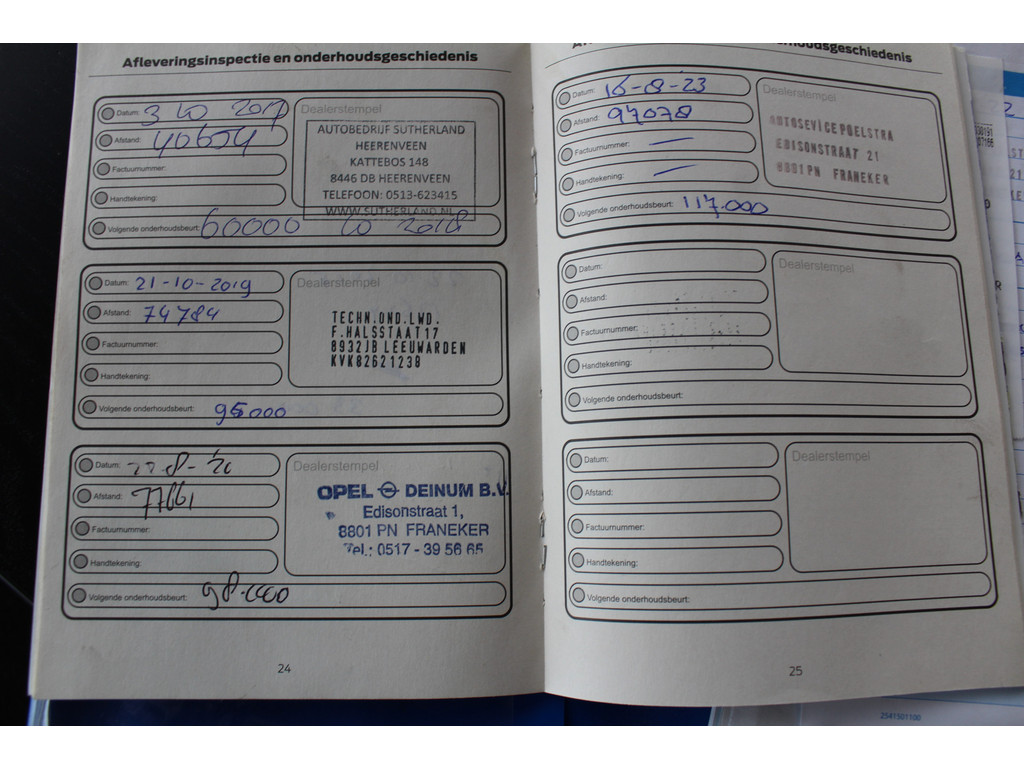 Afleveringsinspectie en onderhoudsgeschiedenis
Datum: 3 10 2017
Afstand: 40654
Factuurnummer:
Handtekening:
Volgende onderhoudsbeurt: 60000 10 2018
Dealerstempel
AUTOBEDRIJF SUTHERLAND
HEERENVEEN
KATTEBOS 148
8446 DB HEERENVEEN
TELEFOON: 0513-623415
WWW.SUTHERLAND.NL
Datum: 21-10-2019
Afstand: 74784
Factuurnummer:
Handtekening:
Volgende onderhoudsbeurt: 95000
Dealerstempel
TECHN.OND.LWD.
F.HALSSTAAT17
8932JB LEEUWARDEN
KVK82621238
Datum: 8-'20
Afstand: 77661
Factuurnummer:
Handtekening:
Volgende onderhoudsbeurt: 98.000
Dealerstempel
OPEL DEINUM B.V.
Edisonstraat 1,
8801 PN FRANEKER
Tel.: 0517 - 39 56 65
24
onderhoudsgeschiedenis
Datum: 16-08-'23
Afstand: 97078
Factuurnummer: —
Handtekening: —
Volgende onderhoudsbeurt: 117.000
Dealerstempel
AUTOSEVICEPOELSTRA
EDISONSTRAAT 21
8801PN FRANEKER
Datum:
Afstand:
Factuurnummer:
Handtekening:
Volgende onderhoudsbeurt:
Dealerstempel
Datum:
Afstand:
Factuurnummer:
Handtekening:
Volgende onderhoudsbeurt:
Dealerstempel
25
2541501100